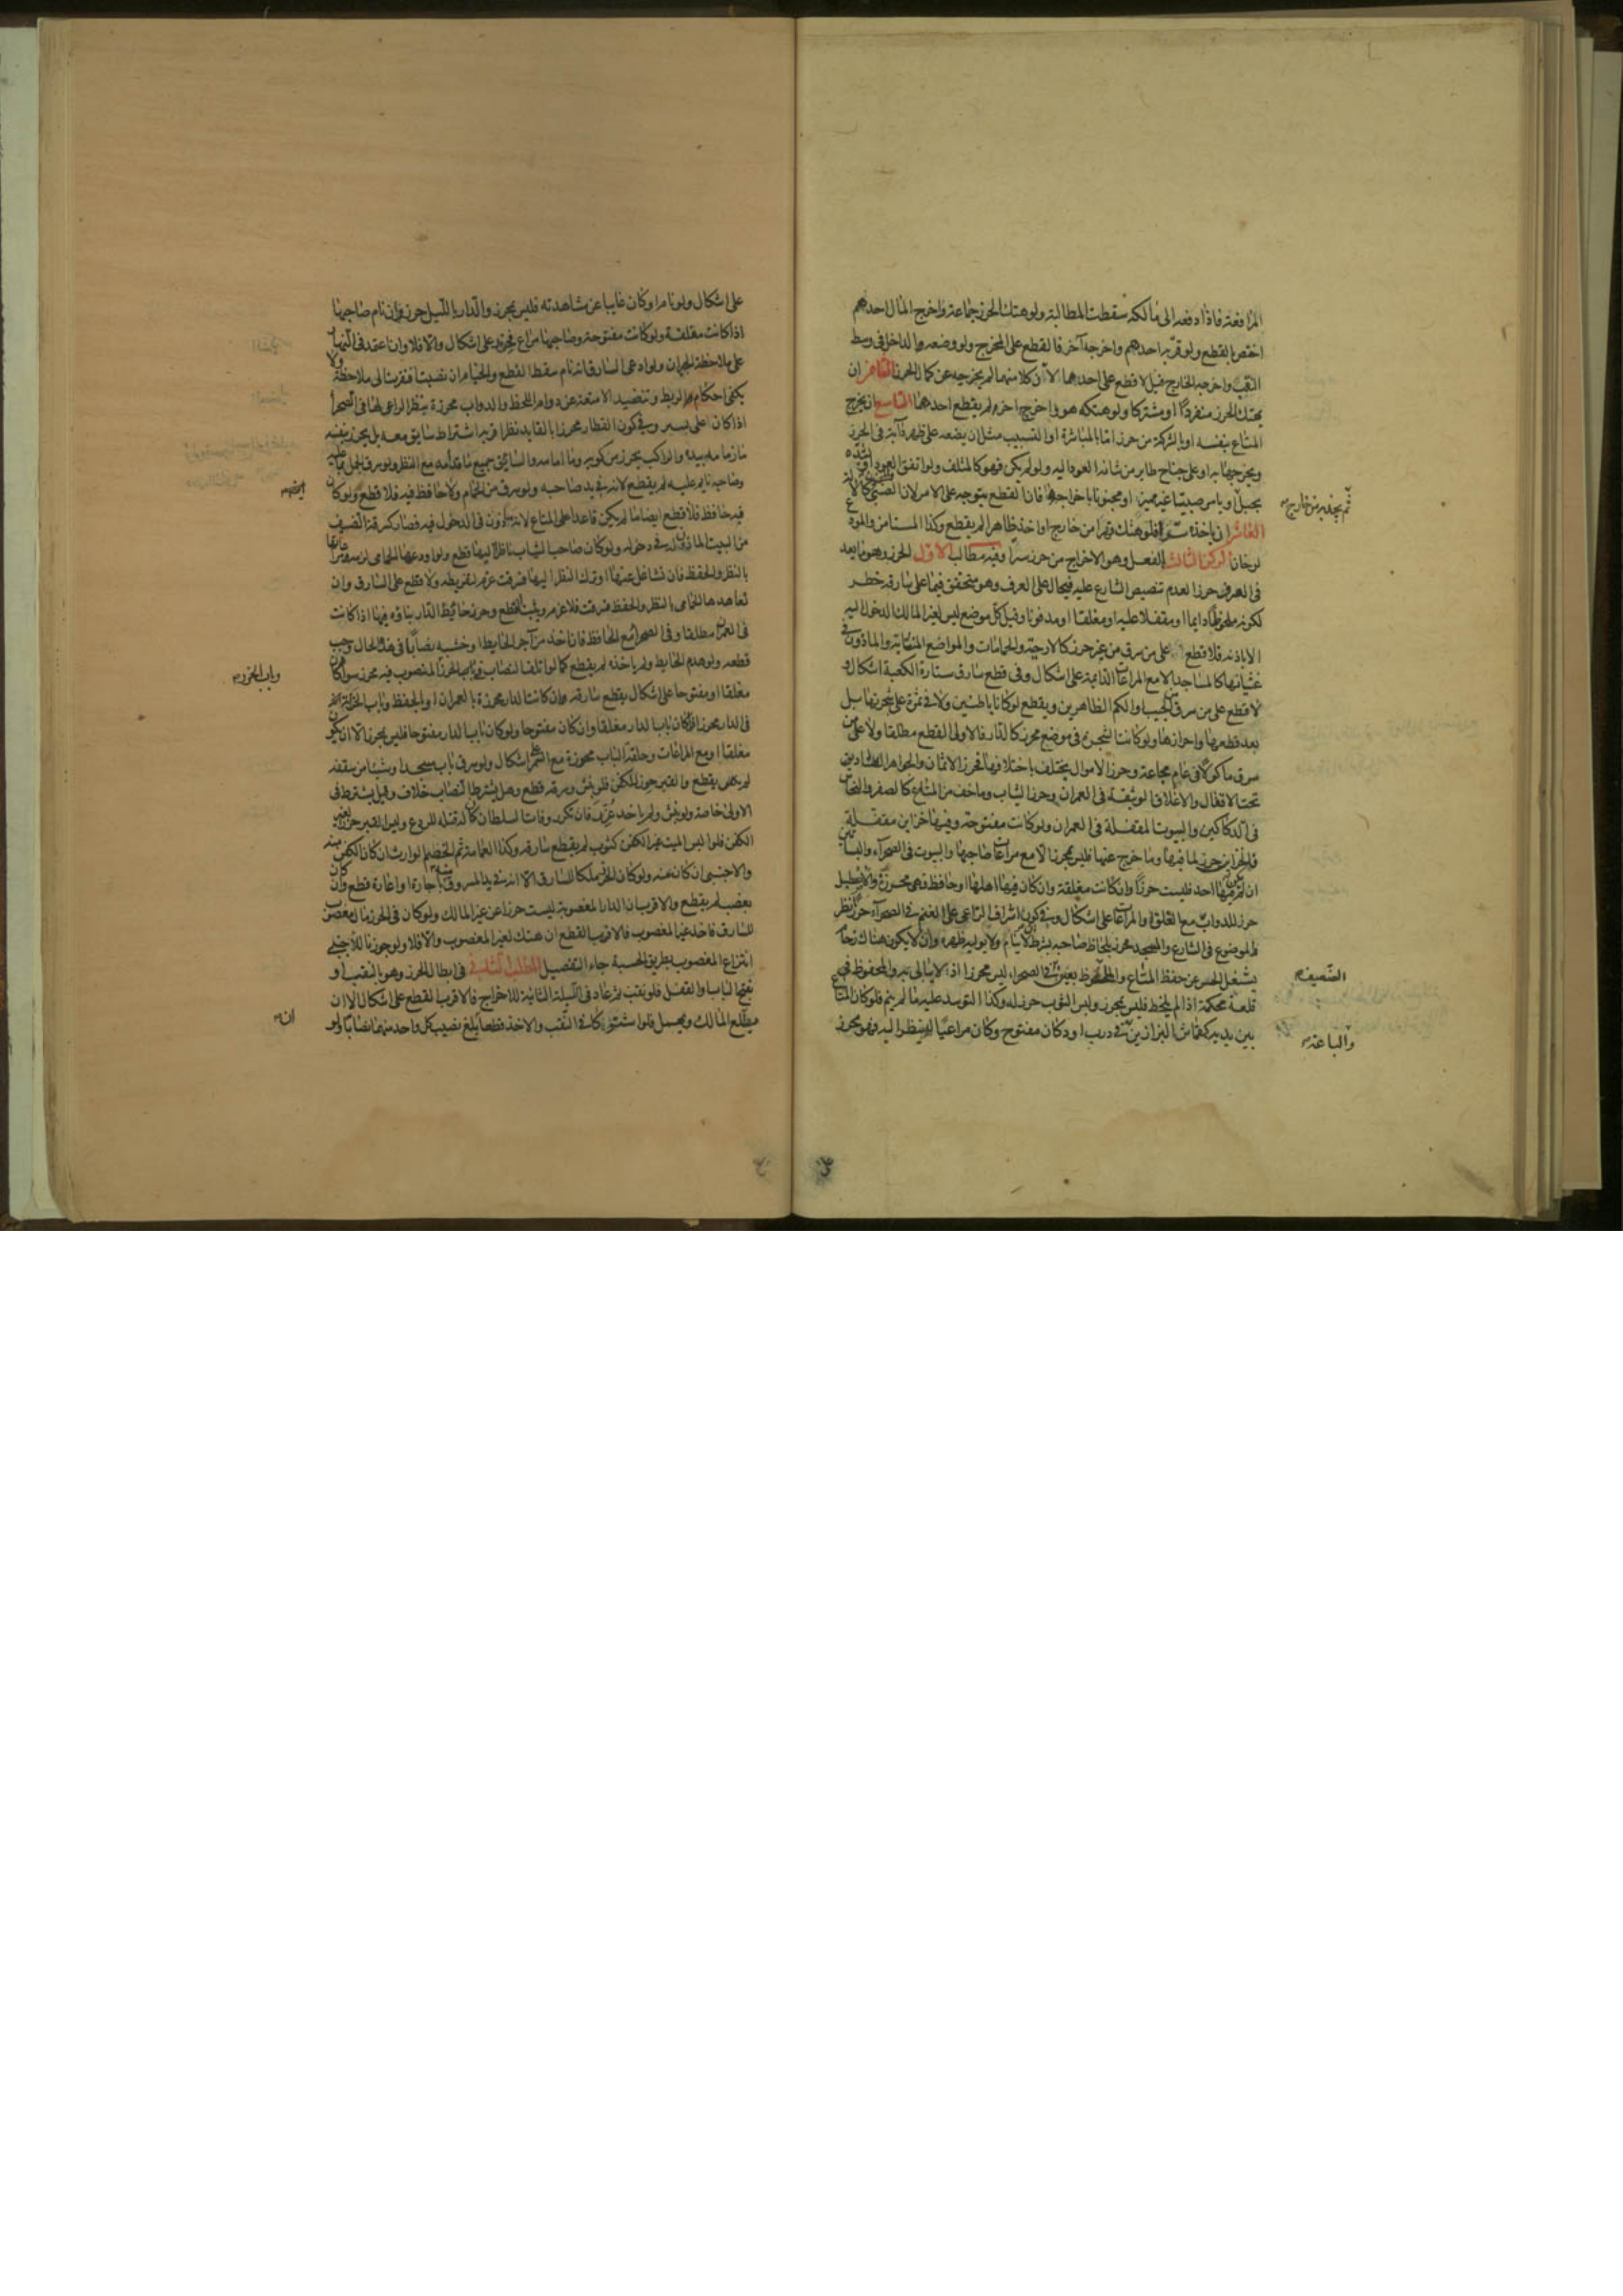 المرافعة فاذا دفعه الى مالكه سقطت المطالبة ولو هتك الحرز جماعة واخرج المال احدهم
اختص بالقطع ولو قربه احدهم واخرجه آخر فالقطع على المخرج ولو وضعه الداخل فى وسط
النقب واخرجه الخارج قيل لا قطع على احدهما لان كلا منهما لم يخرجه عن كمال الحرز الثامن ان
يهتك الحرز منفردا او مشتركا ولو هتكه هو واخرج اخر لم يقطع احدهما التاسع ان يخرج
المتاع بنفسه او بالشركة من حرز اما بالمباشرة او التسبيب مثل ان يضعه على ظهر دابة فى الحرز
ويخرجها به او على جناح طاير من شانه العود اليه ولو لم يكن فهو كالمتلف ولو اتفق العود او يشده
بحبل او يامر صبيا غير مميز او مجنونا باخراجه فان القطع يتوجه على الامر لان الصبى كالالة
ثم يجذبه من خارج
العاشر ان ياخذه سرا فلو هتك قهرا من خارج او اخذ ظاهرا لم يقطع وكذا المستامن والمودع
لو خانا الركن الثالث الفعل وهو الاخراج من حرز سرا وفيه مطالب الاول الحرز وهو ما يعد
فى العرف حرزا لعدم تنصيص الشارع عليه فيحال على العرف وهو متحقق فيما على سارقه خطر
لكونه ملحوظا دايما او مقفلا عليه او مغلقا او مدفونا وقيل كل موضع ليس لغير المالك الدخول اليه
الا باذنه فلا قطع على من سرق من غير حرز كالارحية والحمامات والمواضع المنتابة والماذون فى
غشيانها كالمساجد الا مع المراعات الدايمة على اشكال وفى قطع سارق ستارة الكعبة اشكال و
لا قطع على من سرق من الجيب والكم الظاهرين ويقطع لو كانا باطنين ولا فى ثمرة على شجرتها بل
بعد قطعها واحرازها ولو كانت الشجرة فى موضع محرز كالدار فالاولى القطع مطلقا ولا على من
سرق ماكولا فى عام مجاعة وحرز الاموال يختلف باختلافها فحرز الاثمان والجواهر الصناديق
تحت الاقفال والاغلاق الوثيقة فى العمران وحرز الثياب وما خف من المتاع كالصفر والنحاس
فى الدكاكين والبيوت المقفلة فى العمران ولو كانت مفتوحة وفيها خزاين مقفلة
فالخزاين حرز لما فيها وما خرج عنها فليس بمحرز الا مع مراعات صاحبها والبيوت فى الصحراء والبساتين
ان لم يكن فيها احد فليست حرزا وان كانت مغلقة وان كان فيها اهلها او حافظ فهى محرزة والاصطبل
حرز للدواب مع الغلق او المراعات على اشكال وفى كون اشراف الراعى على الغنم فى الصحراء حرزا نظر
والموضوع فى الشارع والمسجد محرز بلحاظ صاحبه بشرط ان لا ينام ولا يوليه ظهره وان لا يكون هناك زحام
يشغل الحس عن حفظ المتاع والملحوظ بعين الضعيف فى الصحراء ليس محرزا اذ لا يبالى به والمحفوظ فى
قلعة محكمة اذا لم يلحظ فليس بمحرز ولبس الثوب حرز له وكذا التوسد عليه ما لم ينم فلو كان المتاع
بين يديه كقماش البزازين والباعة فى درب او دكان مفتوح وكان مراعيا له ينظر اليه فهو محرز
على اشكال ولو نام او كان غايبا عن مشاهدته فليس بمحرز والدار بالليل حرز وان نام صاحبها
اذا كانت مغلقة ولو كانت مفتوحة وصاحبها مراع فمحرزة على اشكال والا فلا وان اعتمد فى النهار
على ملاحظة الجيران ولو ادعى السارق انه نام سقط القطع والخيام ان نصبت افتقرت الى ملاحظة ولا
يكفى احكام الربط وتنضيد الامتعة عن دوام اللحظ والدواب محرزة بنظر الراعى لها فى الصحراء
اذا كان على نشز وفى كون القطار محرزا بالقايد نظر اقربه اشتراط سايق معه بل يحرز بنفسه
ما زمامه بيده والراكب يحرز مركوبه وما امامه والسايق جميع ما قدامه مع النظر ولو سرق الجمل بما عليه
وصاحبه نايم عليه لم يقطع لانه فى يد صاحبه ولو سرق من الحمام ولا حافظ فيه فلا قطع ولو كان
فيه حافظ فلا قطع ايضا ما لم يكن قاعدا على المتاع لانه ماذون فى الدخول فيه فصار كسرقة الضيف
من البيت الماذون له فى دخوله ولو كان صاحب الثياب ناظرا اليها قطع ولو اودعها الحمامى لزمه مراعاتها
بالنظر والحفظ فان تشاغل عنها او ترك النظر اليها فسرقت غرم لتفريطه ولا قطع على السارق وان
تعاهدها الحمامى بالنظر والحفظ فسرقت فلا غرم ويثبت القطع وحرز حايط الدار بناؤه فيها اذا كانت
فى العمران مطلقا وفى الصحراء مع الحافظ فان اخذ من آجر الحايط او خشبه نصابا فى هذه الحال وجب
قطعه ولو هدم الحايط ولم ياخذه لم يقطع كما لو اتلف النصاب فى الحرز وباب الحرز المنصوب فيه محرز سواء كان
مغلقا او مفتوحا على اشكال يقطع سارقه وان كانت الدار محرزة بالعمران او بالحفظ وباب الخزانة
فى الدار محرز ان كان باب الدار مغلقا وان كان مفتوحا ولو كان باب الدار مفتوحا فليس بمحرز الا ان يكون
مغلقا او مع المراعات وحلقة الباب محرزة مع السمر على اشكال ولو سرق باب مسجد او شيئا من سقفه
لم يقطع والقبر حرز للكفن فلو نبش وسرقه قطع وهل يشترط النصاب خلاف وقيل يشترط فى
الاولى خاصة ولو نبش ولم ياخذ عزر فان تكرر وفات السلطان كان له قتله للردع وليس القبر حرزا لغير
الكفن فلو البس الميت غير الكفن كثوب لم يقطع سارقه وكذا العمامة ثم الخصم الوارث ان كان الكفن منه
والاجنبى ان كان منه ولو كان الحرز ملكا للسارق الا انه فى يد المسروق منه باجارة او اعارة قطع وان كان
بغصب لم يقطع والاقرب ان الدار المغصوبة ليست حرزا عن غير المالك ولو كان فى الحرز مال مغصوب
للسارق فاخذ غير المغصوب فالاقرب القطع ان هتك لغير المغصوب والا فلا ولو جوزنا للاجنبى
انتزاع المغصوب بطريق الحسبة جاء التفصيل المطلب الثانى فى ابطال الحرز وهو بالنقب او
فتح الباب او القفل فلو نقب ثم عاد فى الليلة الثانية للاخراج فالاقرب القطع على اشكال الا ان
يطلع المالك ويهمل فلو اشتركا فى النقب والاخذ قطعا ان بلغ نصيب كل واحد منهما نصابا ولو